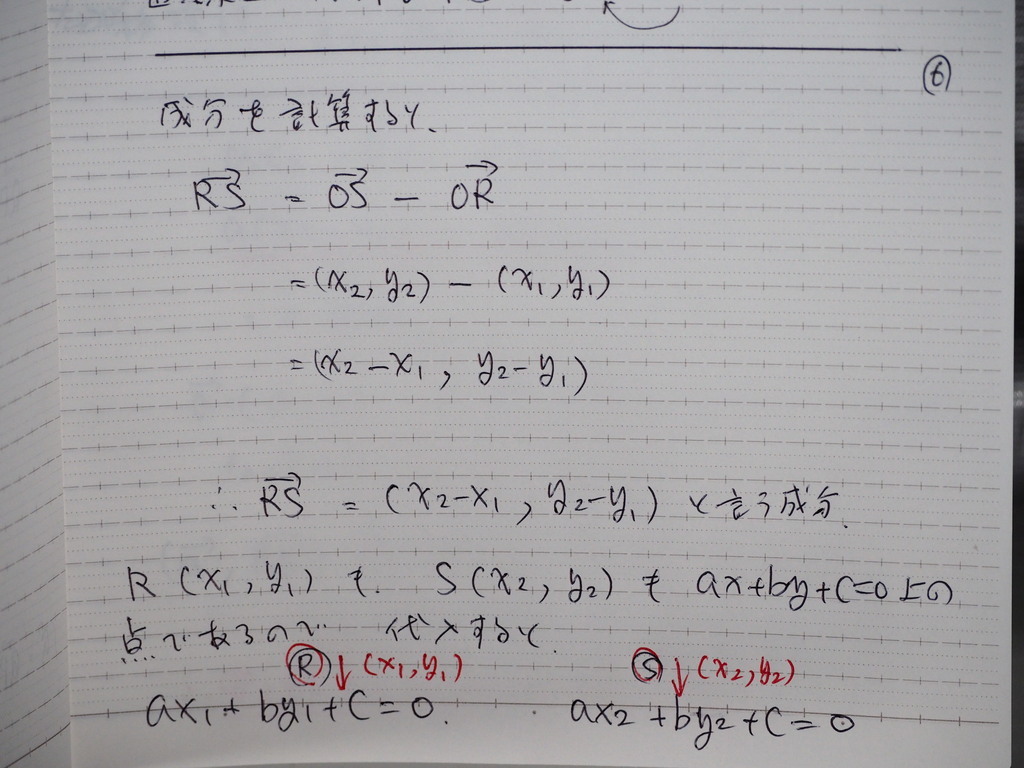 ⑥
成分を計算すると、
RS→ = OS→ − OR→
= (x₂, y₂) − (x₁, y₁)
= (x₂−x₁, y₂−y₁)
∴ RS→ = (x₂−x₁, y₂−y₁) と言う成分.
R (x₁, y₁) も. S (x₂, y₂) も ax+by+c=0 上の
点であるので 代入すると.
Ⓡ↓(x₁, y₁) Ⓢ↓(x₂, y₂)
ax₁ + by₁ + c = 0. ax₂ + by₂ + c = 0